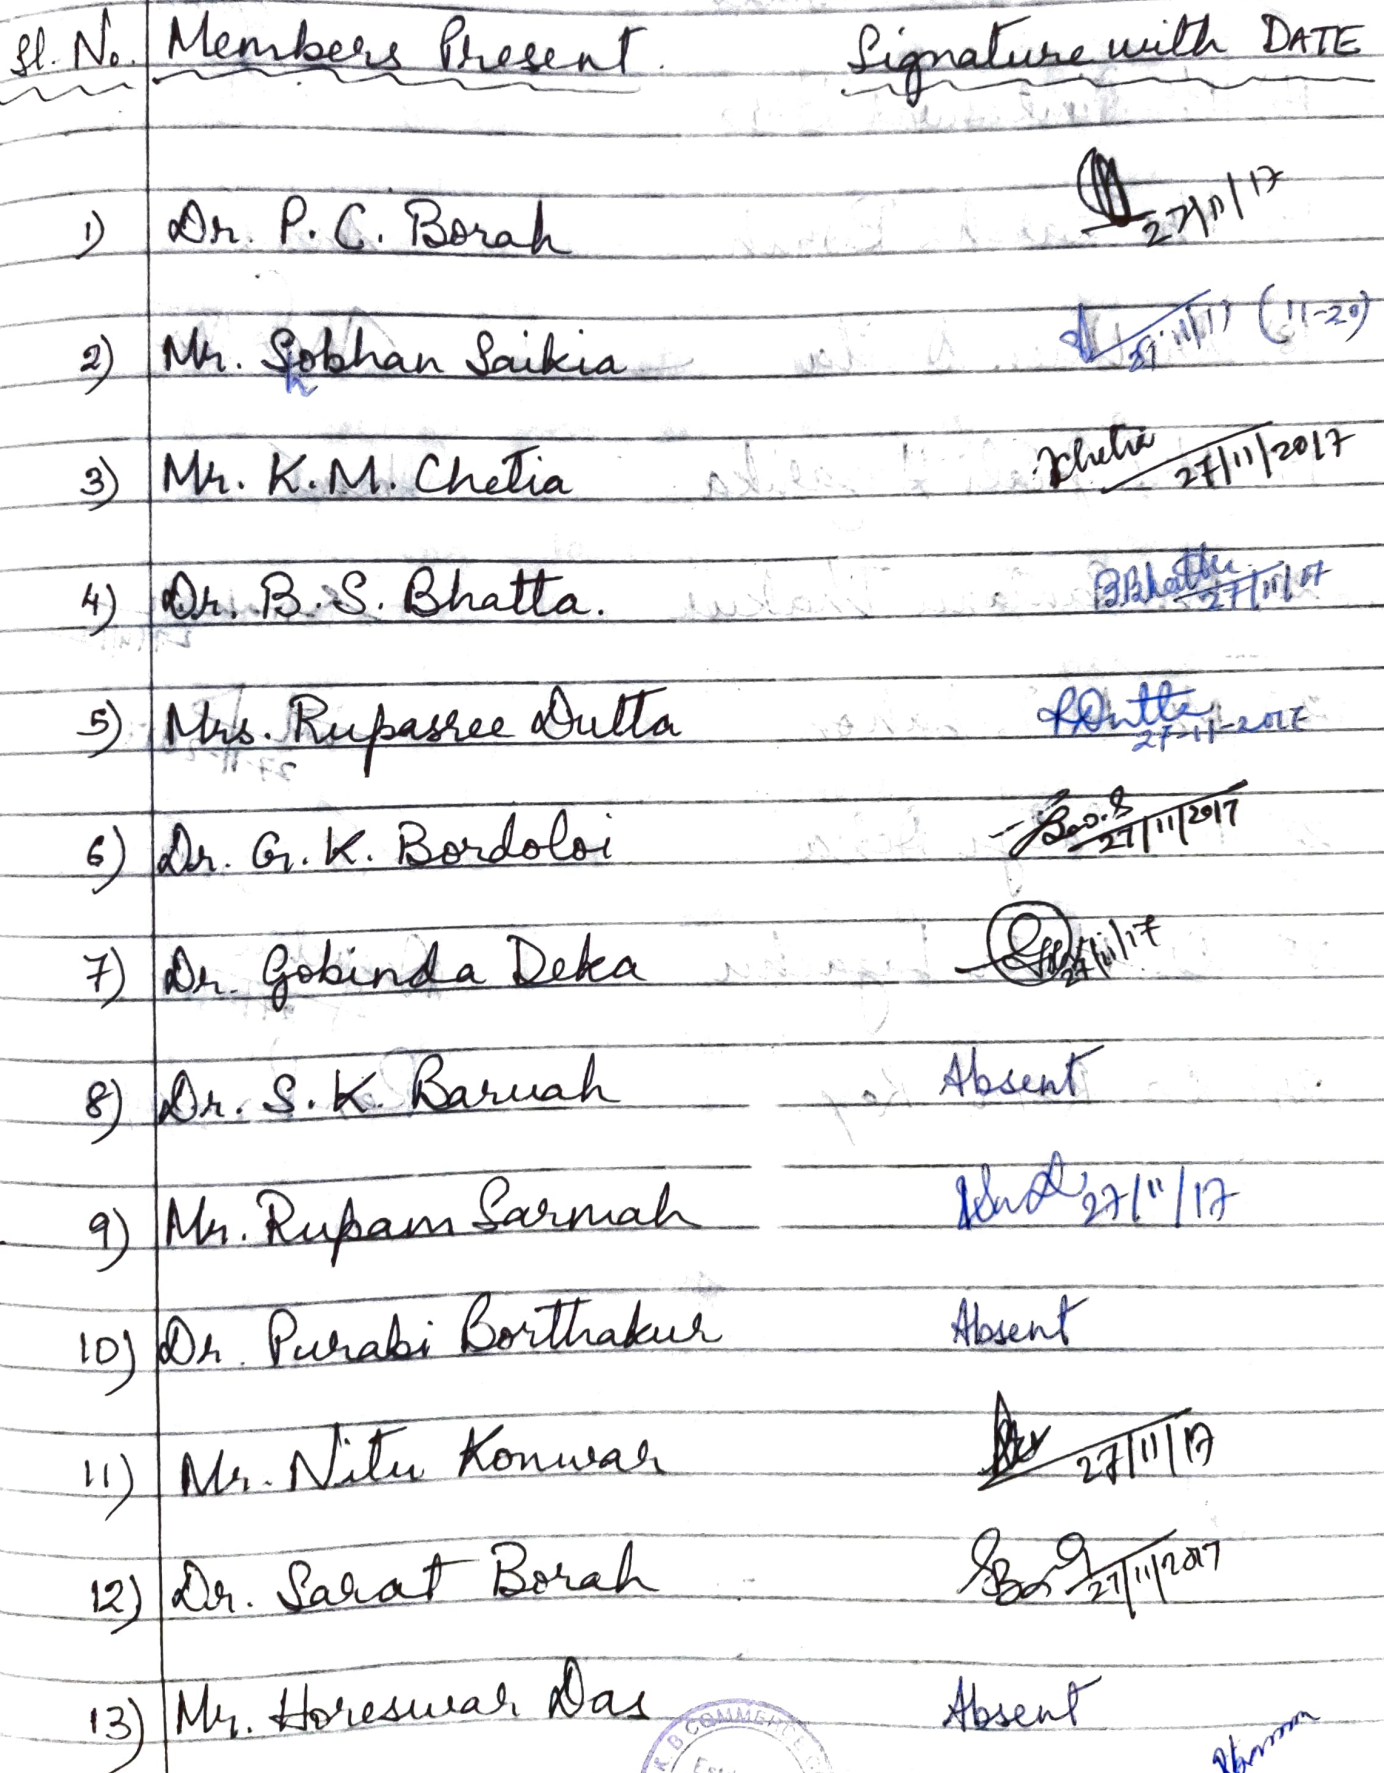 Sl. No. Members Present. Signature with DATE
1) Dr. P. C. Borah 27/11/17
2) Mr. Sobhan Saikia 27/11/17 (11-20)
h
3) Mr. K. M. Chetia Kchetia 27/11/2017
4) Dr. B. S. Bhatta. BBhatta 27/11/17
5) Mrs. Rupasree Dutta RDutta 27-11-2017
6) Dr. G. K. Bordoloi 27/11/2017
7) Dr. Gobinda Deka 27/11/17
8) Dr. S. K. Baruah Absent
9) Mr. Rupam Sarmah 27/11/17
10) Dr. Purabi Borthakur Absent
11) Mr. Nitu Konwar 27/11/17
12) Dr. Sarat Borah 27/11/2017
13) Mr. Horeswar Das Absent
K. B COMMERCE